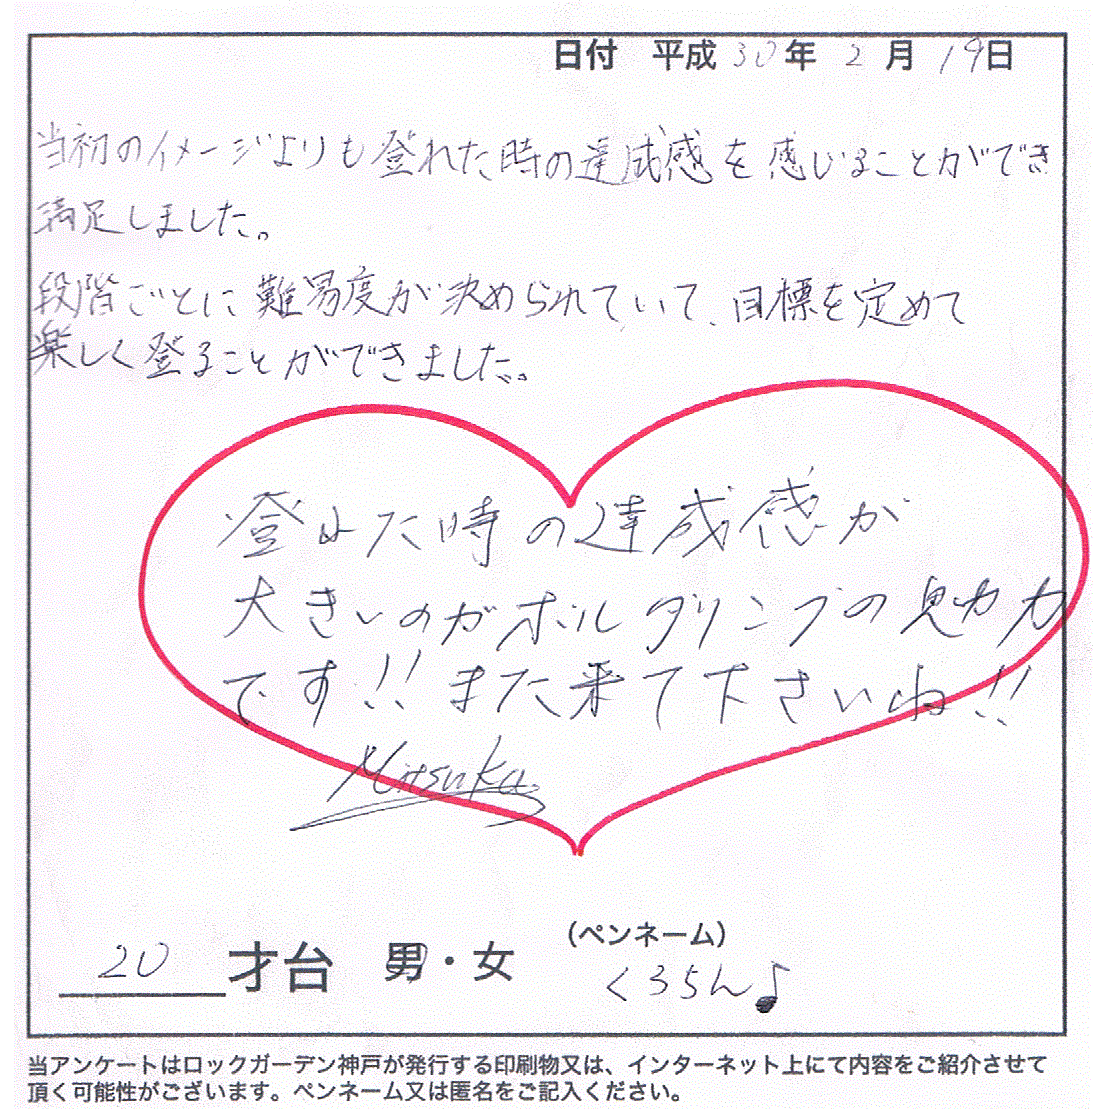 日付 平成 30 年 2 月 19 日
当初のイメージよりも登れた時の達成感を感じることができ
満足しました。
段階ごとに難易度が決められていて、目標を定めて
楽しく登ることができました。
登れた時の達成感が
大きいのがボルダリングの魅力
です!!また来て下さいね!!
Mitsuka
20 才台 男・女 (ペンネーム)
くろらん♪
当アンケートはロックガーデン神戸が発行する印刷物又は、インターネット上にて内容をご紹介させて
頂く可能性がございます。ペンネーム又は匿名をご記入ください。